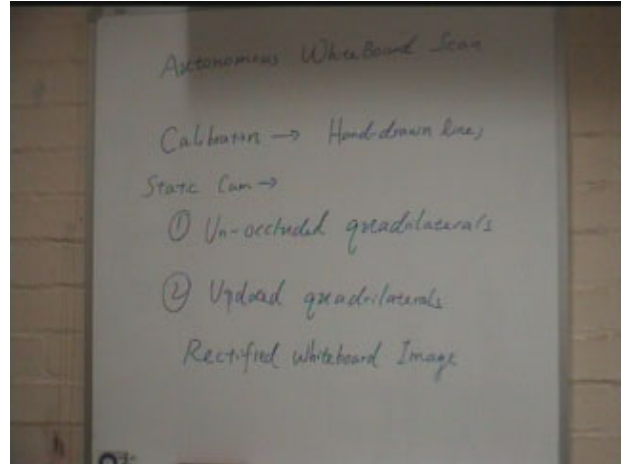 Autonomous WhiteBoard Scan
Calibration → Hand-drawn lines
Static Cam →
① Un-occluded quadrilaterals
② Upload quadrilaterals
Rectified Whiteboard Image